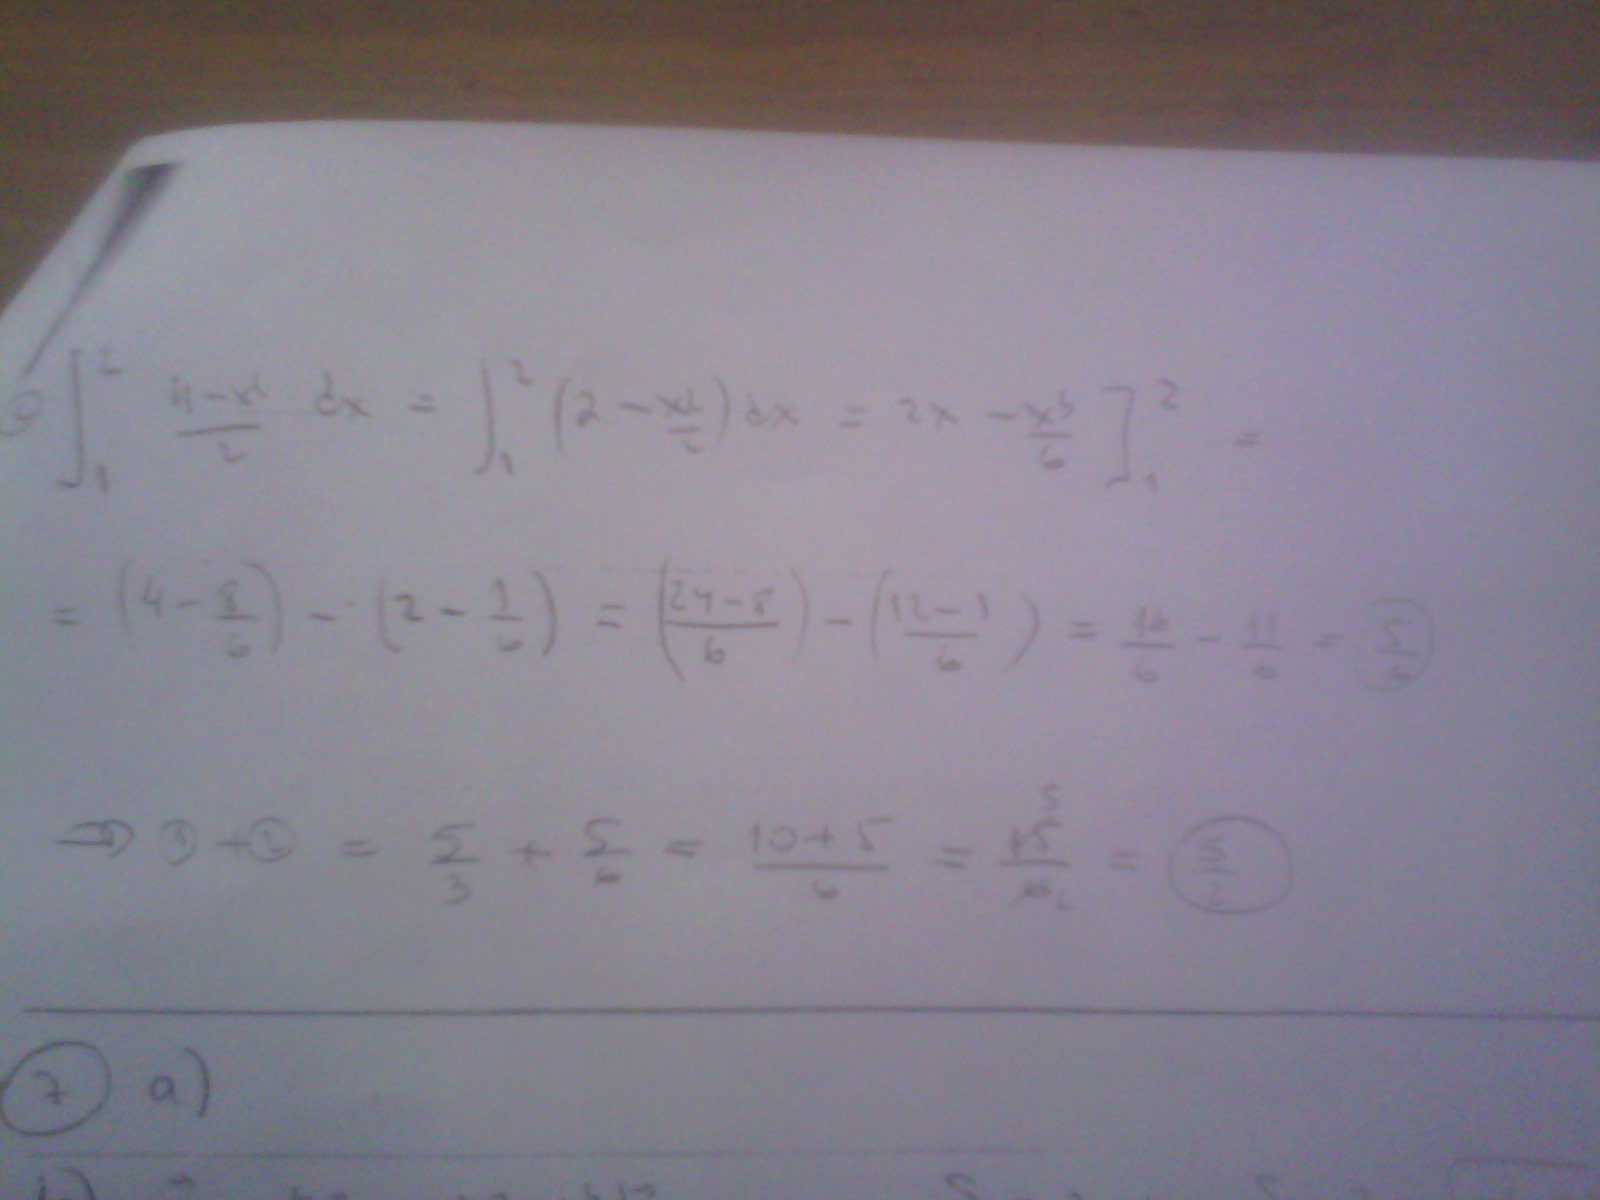 ② ∫₁² (4-x²)/2 dx = ∫₁² (2 - x²/2) dx = 2x - x³/6 ]₁² =
= (4 - 8/6) - (2 - 1/6) = ((24-8)/6) - ((12-1)/6) = 16/6 - 11/6 = 5/6
⇒ ① + ② = 5/3 + 5/6 = (10+5)/6 = 15⁵/6₂ = 5/2
7 a)
b)